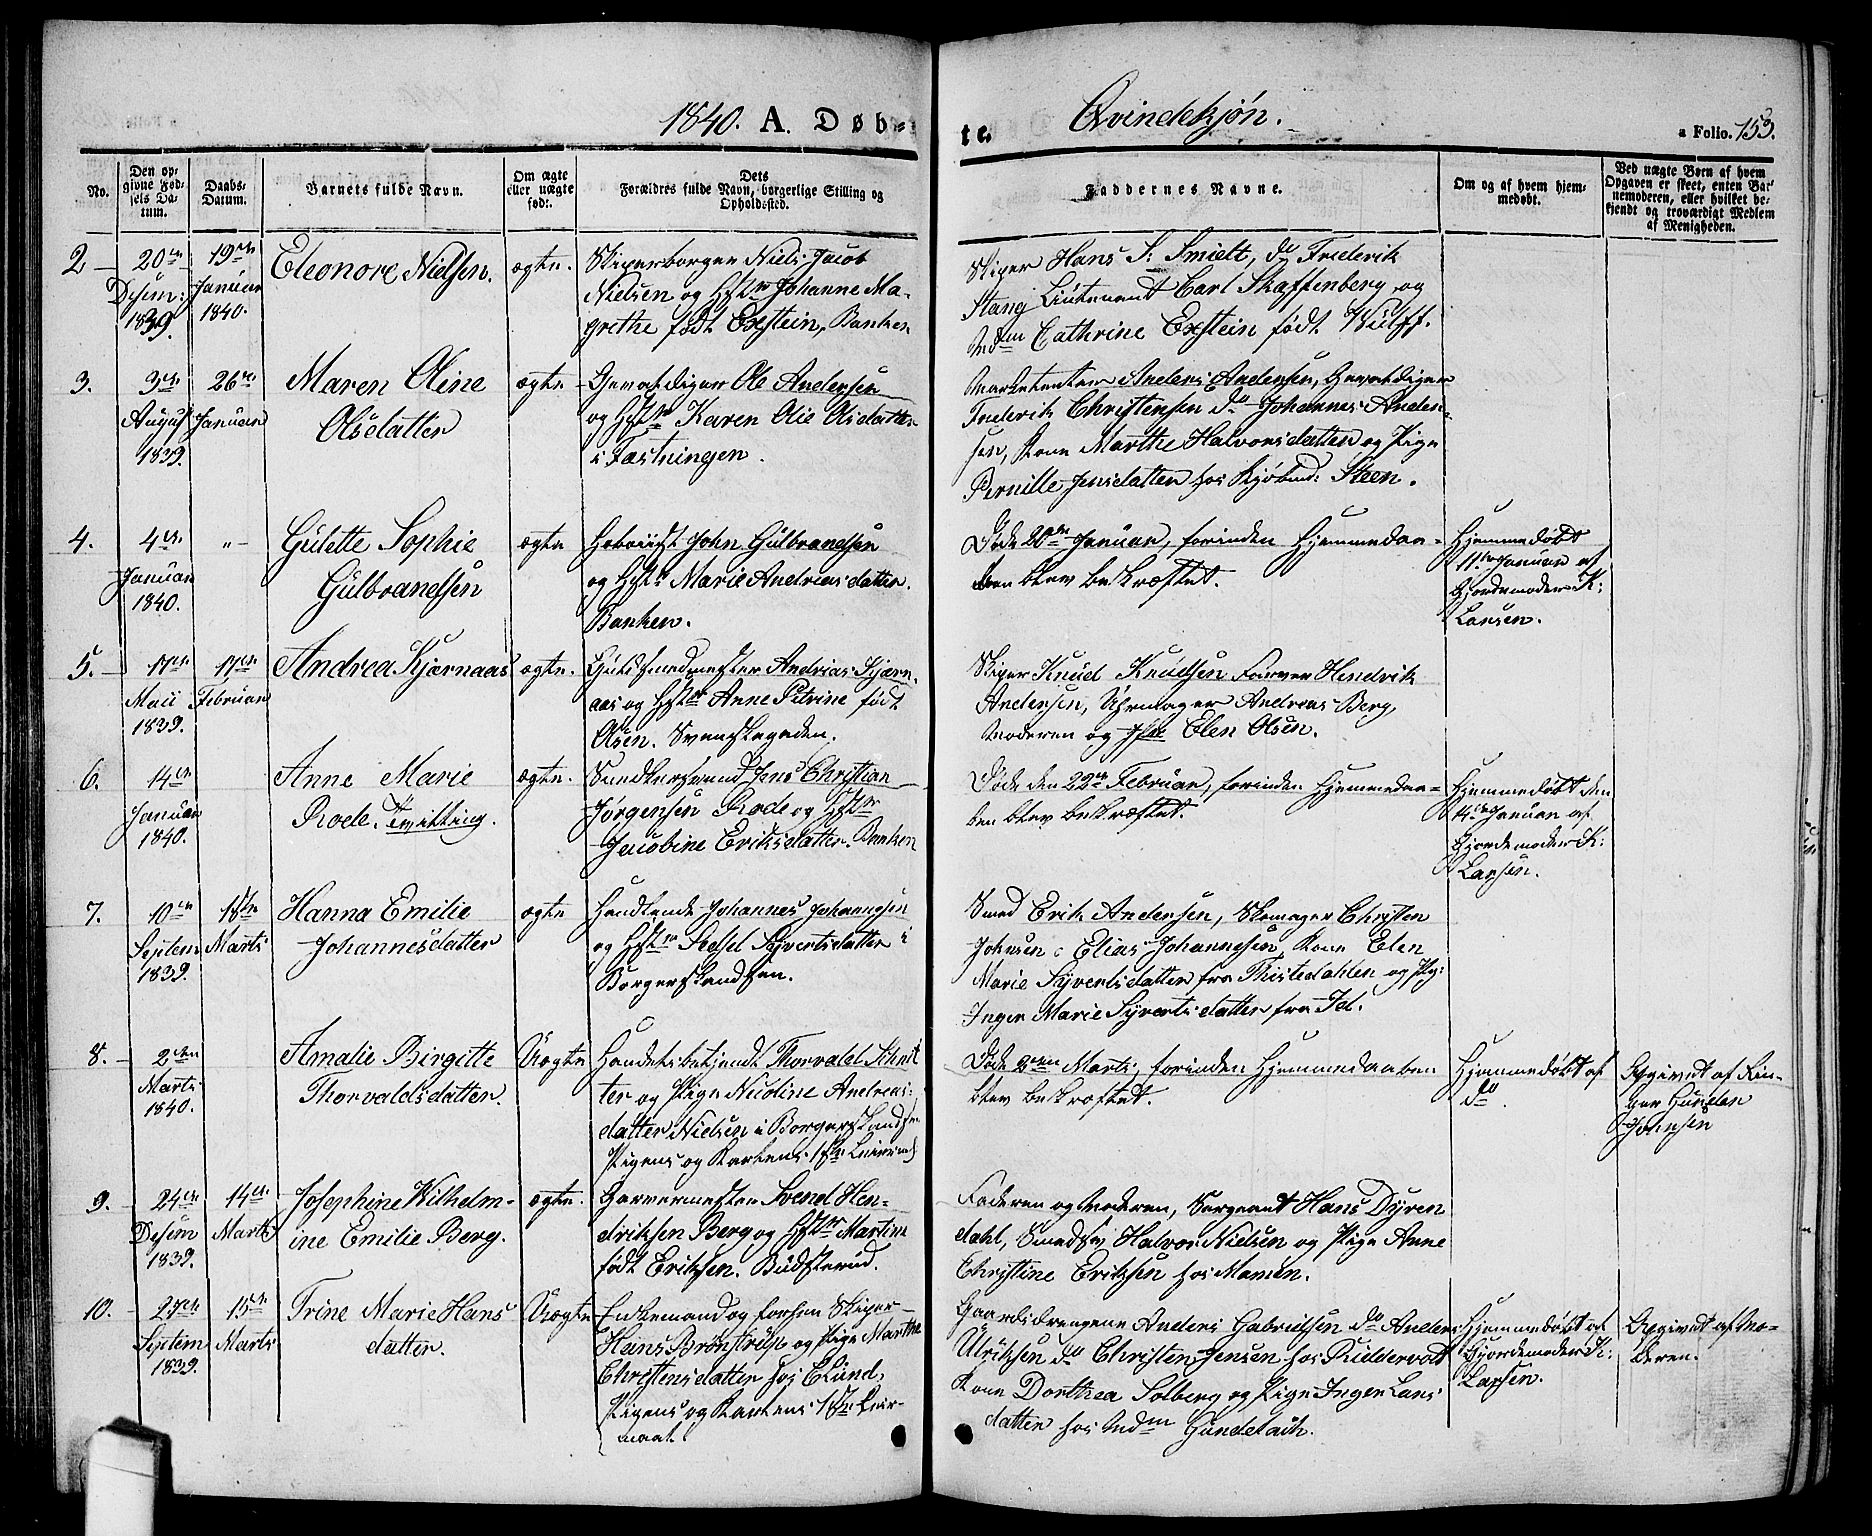 1840. A. Døb-
te. Qvindekjøn.
a Folio. 153.
No.
Den op-
givne Fød-
sels Da-
tum.
Daabs-
Datum.
Barnets fulde Navn.
Om ægte
eller uægte
født.
Dets
Forældres fulde Navn, borgerlige Stilling og
Opholdssted.
Faddernes Navne.
Om og af hvem hjem-
medøbt.
Ved uægte Børn af hvem
Opgaven er skeet, enten Bar-
nemoderen, eller hvilket be-
kjendt og troværdigt Medlem
af Menigheden.
2
20de
Desem:
1839.
19de
Januar
1840.
Eleonore Nielsen.
ægte.
Skiperborger Niels Jacob
Nielsen og Hstr Johanne Ma-
grethe født Exstein, Banken
Skiper Hans S. Smielt, do Frederik
Stang Lieutenant Carl Skaffenberg og
Mdm Cathrine Exstein født Wulff.
3.
3de
August
1839.
26de
Januar
Maren Oline
Olsdatter
ægte
Gevaldiger Ole Andersen
og Hstr Karen Olie Olsdatter
i Fæstningen.
Marketenter Anders Andersen, Gevaldiger
Frederik Christensen do Johannes Ander-
sen, Kone Marthe Halvorsdatter og Pige
Pernille Jensdatter hos Kjøbmd: Steen.
4.
4de
Januar
1840.
"
Gulette Sophie
Gulbrandsen
ægte
Hoboiist John Gulbrandsen
og Hstr Marie Andriasdatter.
Banken.
Døde 20de Januar, forinden Hjemmedaa-
ben blev bekræftet.
Hjemmedøbt
11te Januar af
Gjordemoder K:
Larsen.
5.
17de
Maii
1839.
17de
Februar
Andrea Kjærnaas
ægte.
Guldsmedmester Andrias Kjærn-
aas og Hstr Anne Petrine født
Olsen. Svenskegaden.
Skiper Knud Knudsen Farver Hendrik
Andersen, Uhrmager Andreas Berg,
Moderen og Jfr Elen Olsen.
6.
14de
Januar
1840.
Anne Marie
Rode. Tvilling.
ægte.
Snedkersvend Jens Christian
Jørgensen Rode og Hstr
Jacobine Eriksdatter. Banken
Døde den 22de Februar, forinden Hjemmedaa-
ben blev bekræftet.
Hjemmedøbt den
14de Januar af
Gjordemoder K:
Larsen.
7.
10de
Septem
1839.
18de
Marts
Hanna Emilie
Johannesdatter
ægte
Handlende Johannes Johannesen
og Hstr Sivertsdatter i
Borgerskandsen.
Smed Erik Andersen, Skomager Christen
Johnsen Elias Johannesen Kone Elen
Marie Syvertsdatter fra Thistedahlen og Pig:
Inger Marie Syvertsdatter fra Id.
8.
2den
Marts
1840.
Amalie Birgitte
Thorvaldsdatter.
Uægte
Handelsbetjendt Thorvald Schnit
ter og Pige Nicoline Andreas-
datter Nielsen i Borgerskands
Pigens og Karlens 1ste Leierm
Døde Marts, forinden Hjemmedaaben
blev bekræftet.
Hjemmedøbt af
do.
Opgivet af
Johnsen
9.
24de
Desem
1839.
14de
Marts
Josephine Wilhelm-
ine Emilie Berg.
ægte.
Garvermester Svend Hen-
driksen Berg og Hstr Martine
født Eriksen. Budsterud.
Faderen og Moderen, Sergeant Hans Dyren
dahl, Halvor Nielsen og Pige Anne
Christine Eriksen hos Mamen.
10.
27de
Septem
1839.
15de
Marts
Trine Marie Hans
datter.
Uægte
Enkemand og forhen Skiper
Hans og Pige Marthe
Christensdatter hos Lund,
Pigens og Karlens 1ste Leier-
maal.
Gaardsdrengene Anders Gabrielsen do Anders
Ulriksen do Christen Jensen hos Riddervold
Kone Dorthea Solberg og Pige Inger Lars
datter hos Mdm Gundelach.
Hjemmedøbt af
Gjordemoder K:
Larsen.
Opgivet af Mo-
deren.